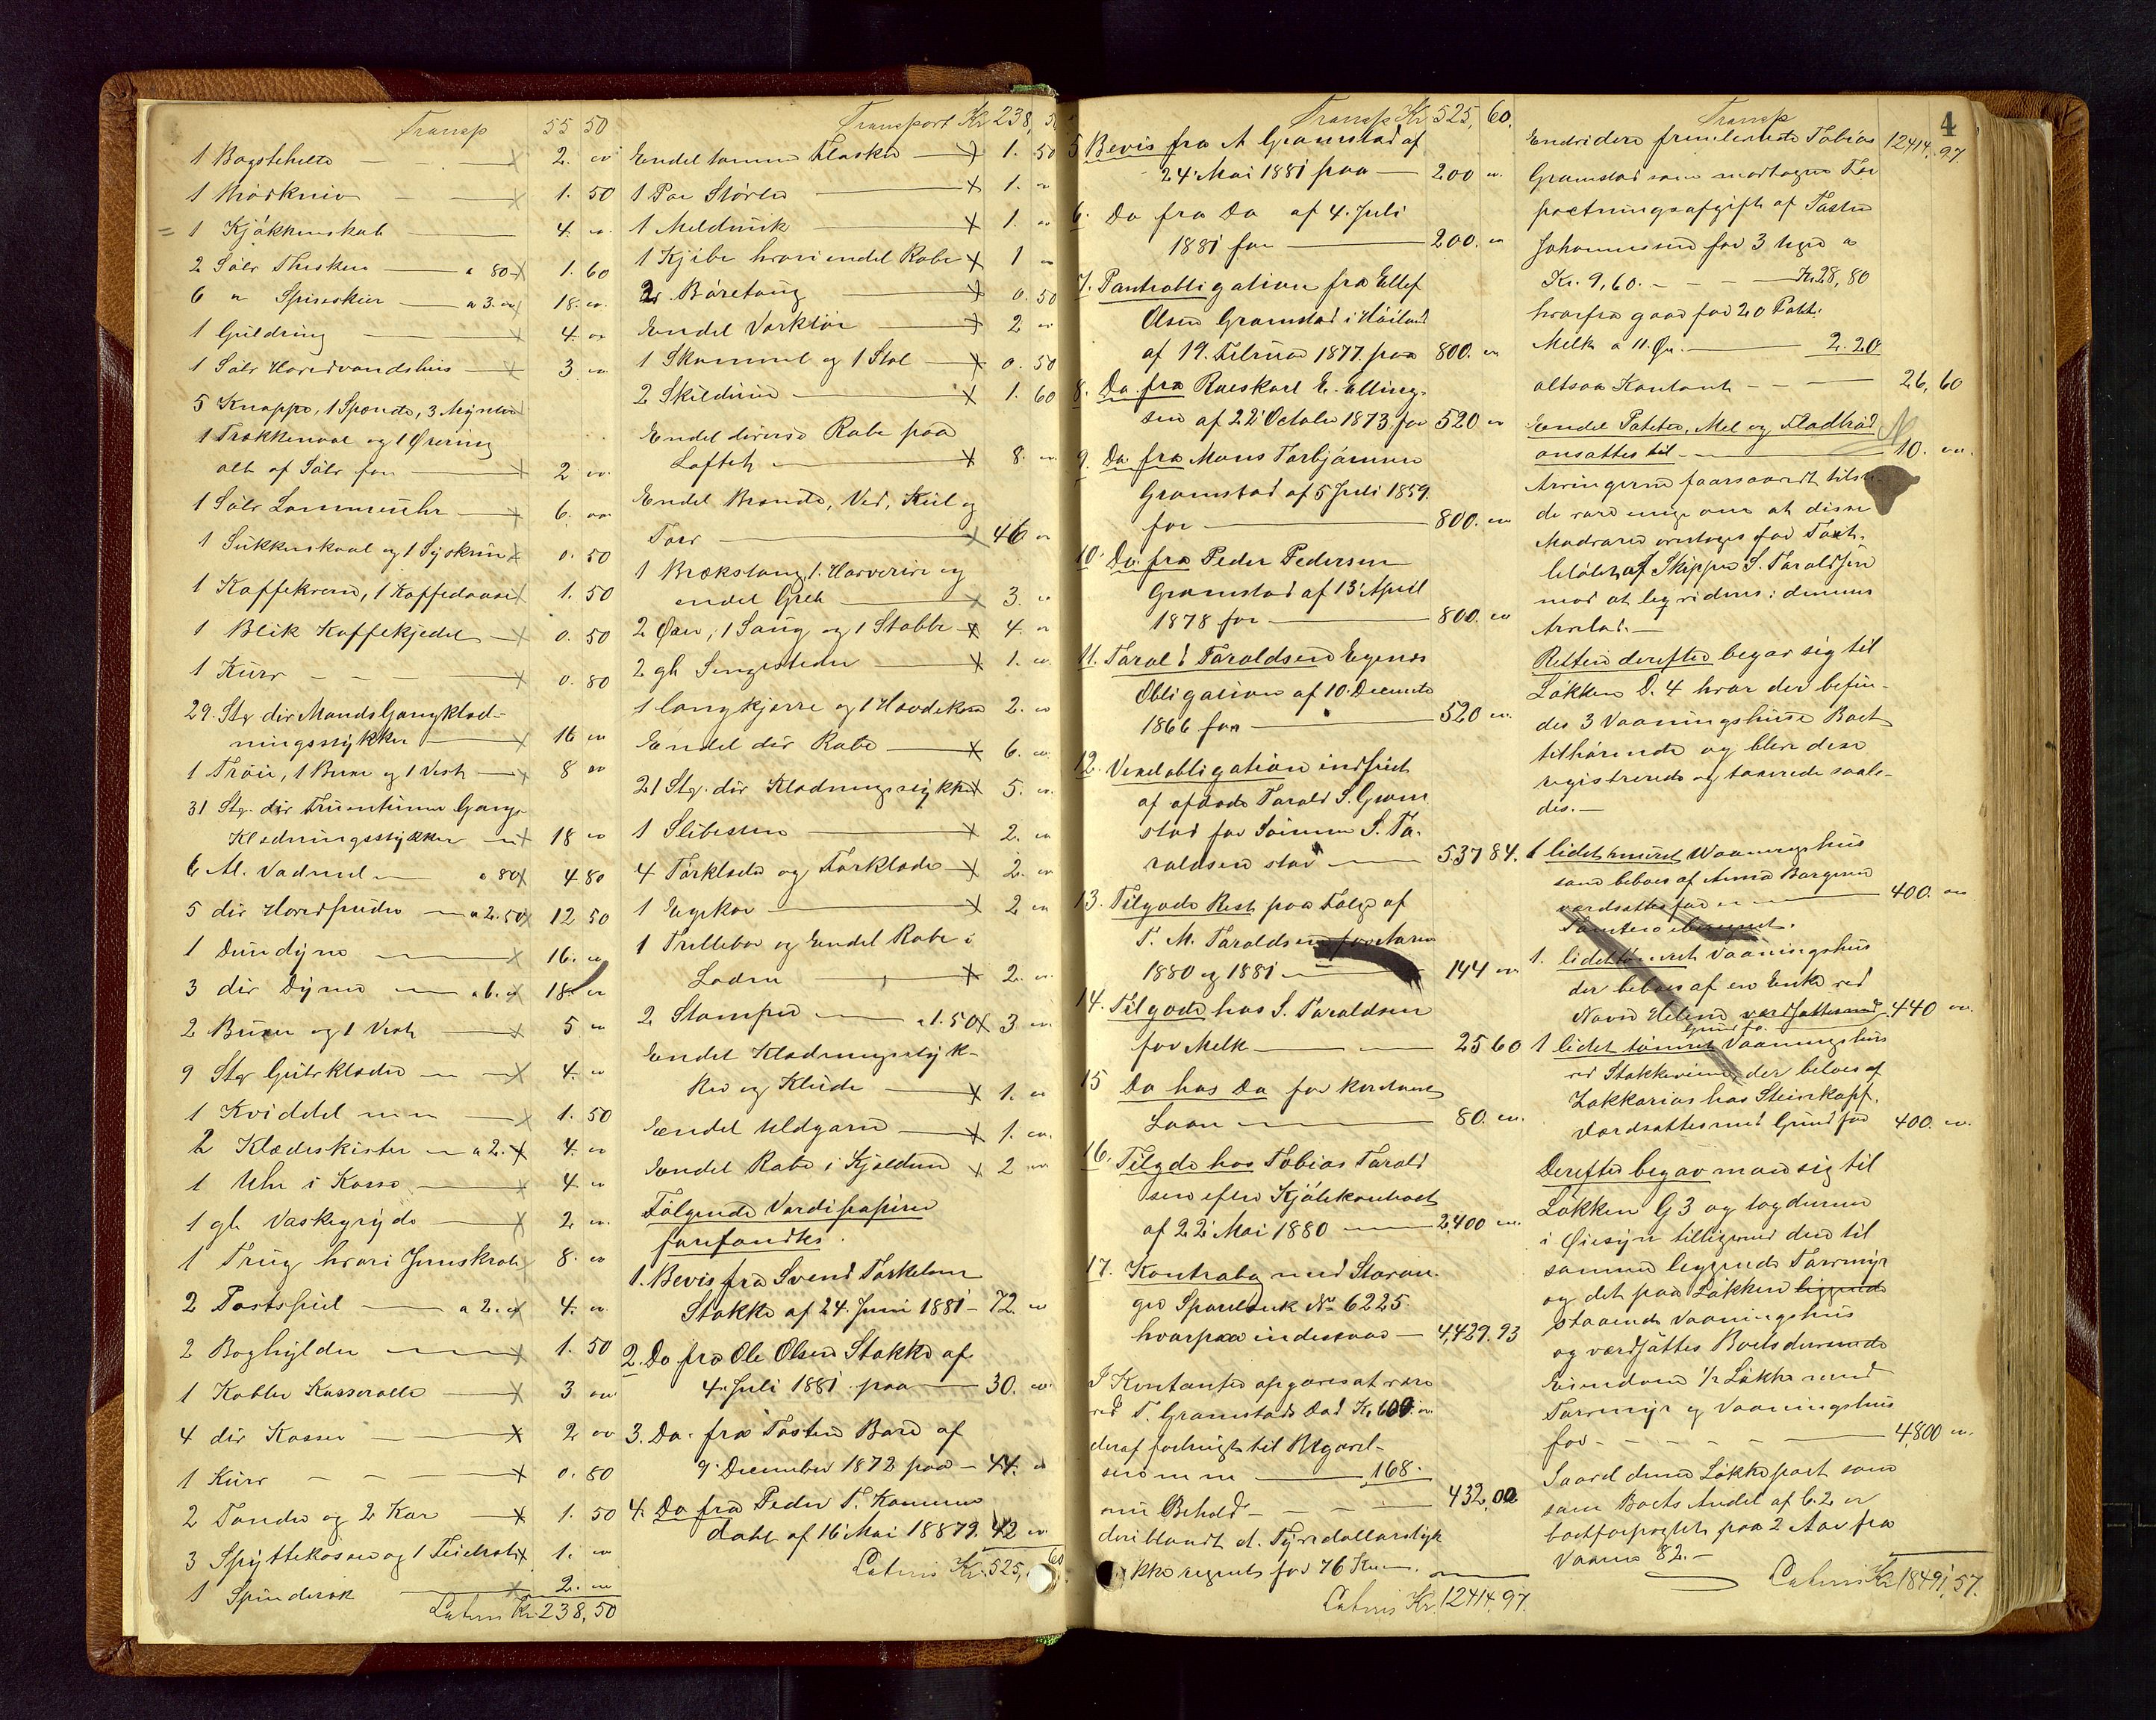 Transp 55 50
1 Bogstehelte 2. "
1 Brødkniv 1. 50
= 1 Kjøkkenskab 4. "
2 Sølv Theskeer a 80 1. 60
6 " Spiseskeer a 3. " 18. "
1 Guldring 4. "
1 Sølv Hovedvandshus 3 "
5 Knappe, 1 Spænde, 3 Mynter
1 Trækkenaal og 1 Ørering
alt af Sølv for 2 "
1 Sølv Lommeuhr 6. "
1 Sukkerskaal og 1 Syskrin 0. 50
1 Kaffekværn, 1 Kaffedaase 1. 50
1 Blik Kaffekjedel 0. 50
1 Kurv 0. 80
29. Stk dir Mands Gangklæd-
ningsstykker 16 "
1 Trøie, 1 Buxe og 1 Vest 8 "
31 Stk. dir Fruentimmer Gang-
Klædningsstykker 18 "
6 Al. Vadmel a 80 4 80
5 dir Hovedpuder a 2.50 12 50
1 Dundyne 16. "
3 dir Dyner a 6. " 18. "
2 Buxer og 1 Vest 5 "
9 Stk Gulvklæder 4. "
1 Kviddel 1. 50
2 Klædeskister a 2. 4. "
1 Uhr i Kasse 4 "
1 gl Vaskegryde 2 "
1 Trug hvori Jernskrab 8. "
2 Postspiel a 2. " 4. "
2 Boghylder 1. 50
1 Kobber Kasserolle 3 "
4 dir Kasser 2 "
1 Kurv 0. 80
2 Tønder og 2 Kar 1. 50
3 Spyttekasser og 1 1. "
1 Spinderok 2. "
Latus Kr. 238, 50
Transport Kr 238, 50
Endel tomme Flasker 1. 50
1 Par Støvler 1. "
1 Meldunk 1. "
1 Kjibe hvori endel Rabe 1 "
2. Børetoug 0. 50
Endel Værktøi 2 "
1 Skammel og 1 Stol 0. 50
2 Skilderier 1. 60
Endel diverse Rabe paa
Loftet 8. "
Endel Brænde, Ved, Kul og
Torv 46 "
1 Brækstang, 1. Harverive og
endel Greb 3. "
2 Øxer, 1 Saug og 1 Stabbe 4. "
2 gl Sengesteder 1. "
1 Langkjærre og 1 Hovdekær 2. "
Endel dir Rabe 6. "
21 Stk. dir Klædningsstykker 5. "
1 Slibesten 2. "
4 Tørklæder og Forklæde 2. "
1 Egekar 2 "
1 Trillebør og Endel Rabe i
Laden 2. "
2 Stamper a 1. 50 3 "
Endel Klædningsstyk-
ker og Klude 1. "
Endel Uldgarn 1. "
Endel Rabe i Kjelderen 2 "
Følgende Værdipapirer
forefandtes.
1. Bevis fra Svend Torkelsen
Stokke af 24. Juni 1881 72 "
2. Do fra Ole Olsen Stokke af
4. Juli 1881 paa 30. "
3. Do. fra Tosten Bore af
9. December 1872 paa 44. "
4. Do fra Peder T. Kamme
dahl af 16 Mai 18879. 42 "
Latus Kr. 525, 60
Transp Kr. 525, 60.
5 Bevis fra A Gramstad af
24. Mai 1881 paa 200 "
6. Do fra Do af 4. Juli
1881 for 200. "
7. Pantobligation fra Ellef
Olsen Gramstad i Høiland
af 19. Februar 1877. paa 800. "
8. Do. fra Raeskard E. Elling-
sen af 22' October 1873 for 520 "
9. Do. fra Mons Torbjørnsen
Gramstad af 5 Juli 1859.
for 800. "
10. Do. fra Peder Pedersen
Gramstad af 13' April
1878 for 800. "
11. Tarald Taraldsens Egenes
Obligation af 10. December
1866 for 520 "
12. Vexelobligation indfriet
af afdøde Tarald S. Gram
stad for Sønnen S. Ta-
raldsen stor 537 84.
13. Tilgode Rest paa Følge af
T. M. Taraldsen for Aaren
1880 og 1881 144 "
14. Tilgode hos S. Taraldsen
for Melk 25 60
15 Do hos Do for kontant
Laan 80. "
16. Tilgode hos Tobias Tarald
sen efter Kjøbekontract
af 22' Mai 1880 2400 "
17. Kontrabog med Stavan-
ger Sparebank No 6225
hvorpaa indestaar 4,429. 93
I Kontanter opgaves at være
ved T. Gramstads Død Kr. 600. "
deraf forbrugt til Begravel-
sen m m 168.
nu Behold 432, 00
deriblandt et. Fyrredollarstyk
ikke regnet for 76 Kr.
Latus Kr. 12414, 97.
4
Transp
Endvidere fremlevnte Tobias 12414, 97
Gramstad som modtagne For
pagtningsafgift af Tosten
Johannesen for 3 Uger a
Kr. 9,60. Kr 28, 80
hvorfra gaar for 20 Pott:
Melk a 11. Øre 2. 20
altsaa Kontant 26, 60
Endel Poteter, Mel og Fladbrød
ansattes til 10. "
Arvingerne forsaavidt tilste-
de vare enige om at disse
Madvarer overtoges for Taxt-
beløbet af Skipper S. Taraldsen
mod at lægevidens i dennes
Arvelod.
Retten derefter begav sig til
Løkken D. 4 hvor der befin-
des 3 Vaaningshuse Boet
tilhørende og bleve disse
registrerede og taxerede saale-
des.
1 lidet muret Vaaningshus
som beboes af Anna Borgesen
værdsattes for 400. "
Tomten
1. lidet tømret Vaaningshus
der beboes af en Enke ved
Navn Helene værdsattes med 440 "
Grund for
1 lidet tømret Vaaningshus
ved Stokkeveien, der beboes af
Zakkarias hos Steinkopf.
Værdsattes med Grund for 400. "
Derefter begav man sig til
Løkken G 3 og tog denne
i Øiesyn tilligemed den til
samme liggende Torvmyr
og det paa Løkken liggende
staaende Vaaningshus
og værdsattes Boets derværende
Eiendom 1/2 Løkke med
Torvmyr og Vaaningshus
for 4,800 "
Saavel denne Løkkepart som
som Boets Andel af C. 2 er
bortforpagtet paa 2 Aar fra
Vaaren 82.
Latus Kr 18491, 57.